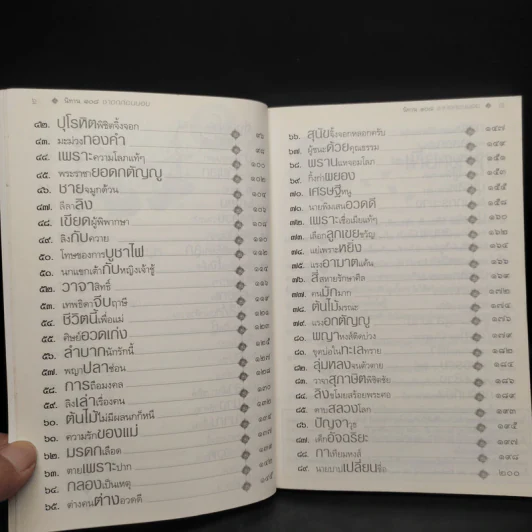 ๖ นิทาน ๑๐๘
๔๒. ปุโรหิตพิชิตจิ้งจอก ๙๖
๔๓. มะม่วงทองคำ ๙๘
๔๔. เพราะความโลภแท้ๆ ๑๐๐
๔๕. พระราชายอดกตัญญู ๑๐๒
๔๖. ชายจมูกด้วน
๔๗. ลีลาลิง
๔๘. เขียดผู้พิพากษา
๔๙. ลิงกับควาย ๑๑๐
๕๐. โทษของการบูชาไฟ
๕๑. นกแขกเต้ากับหญิงเจ้าชู้
๕๒. วาจาสิทธิ์
๕๓. เทพธิดาจีบฤาษี
๕๔. ชีวิตนี้เพื่อแม่
๕๕. ศิษย์อวดเก่ง
๕๖. ลำบากนักรักนี้ ๑๒๕
๕๗. พญาปลาช่อน ๑๒๗
๕๘. การถือมงคล
๕๙. ลิงเล่าเรื่องคน
๖๐. ต้นไม้ไม่มีผลนกก็หนี
๖๑. ความรักของแม่
๖๒. มรดกเลือด
๖๓. ตายเพราะปาก
๖๔. กลองเป็นเหตุ
๖๕. ต่างคนต่างอวดดี
นิทาน ๑๐๘
๖๖. สุนัขจิ้งจอกหลอกครับ ๑๔๗
๖๗. ผู้ชนะด้วยคุณธรรม ๑๔๙
๖๘. พรานแหจอมโลภ ๑๕๑
๖๙. กิ้งก่าผยอง ๑๕๓
๗๐. เศรษฐีหนู ๑๕๕
๗๑. นายพิมเสนอวดดี ๑๕๘
๗๒. เพราะเชื่อเมียแท้ๆ ๑๖๐
๗๓. เลือกลูกเขยขวัญ ๑๖๒
๗๔. แย่เพราะหยิ่ง ๑๖๔
๗๕. แรงอาฆาตแค้น ๑๖๖
๗๖. สี่สหายรักษาศีล ๑๖๙
๗๗. คนมักมาก ๑๗๒
๗๘. ต้นไม้มรณะ ๑๗๔
๗๙. แรงอกตัญญู ๑๗๖
๘๐. พญาหงส์ติดบ่วง
๘๑. ขุดบ่อในทะเลทราย
๘๒. ลุ่มหลงจนตัวตาย ๑๘๔
๘๓. วาจาสุภาษิตพิชิตชัย
๘๔. ลิงขโมยสร้อยพระศอ
๘๕. คาบสลวงโลก
๘๖. ปัญญาวุธ ๑๙๕
๘๗. เด็กอัจฉริยะ ๑๙๗
๘๘. กาเทียมหงส์ ๑๙๘
๘๙. นายบาปเปลี่ยนชื่อ ๒๐๐